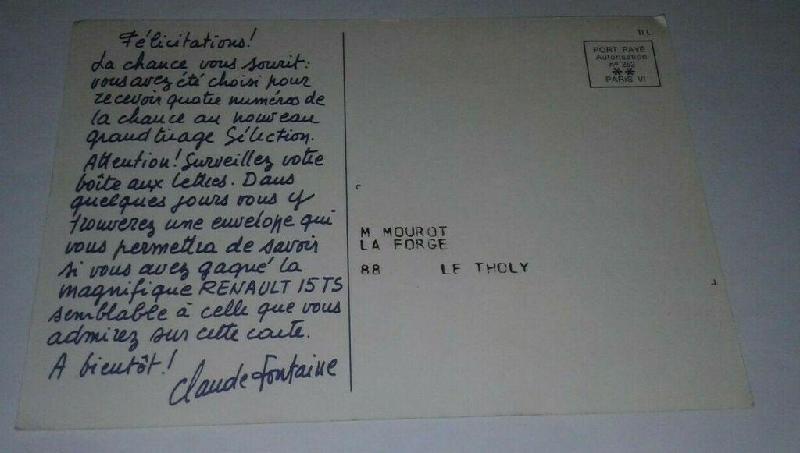 Félicitations!
La chance vous sourit:
vous avez été choisi pour
recevoir quatre numéros de
la chance au nouveau
grand tirage Sélection.
Attention! Surveillez votre
boîte aux lettres. Dans
quelques jours vous y
trouverez une enveloppe qui
vous permettra de savoir
si vous avez gagné la
magnifique RENAULT 15TS
semblable à celle que vous
admirez sur cette carte.
A bientôt!
Claude Fontaine
PORT PAYÉ
Autorisation
N° 262
**
PARIS VI
M MOUROT
LA FORGE
88 LE THOLY